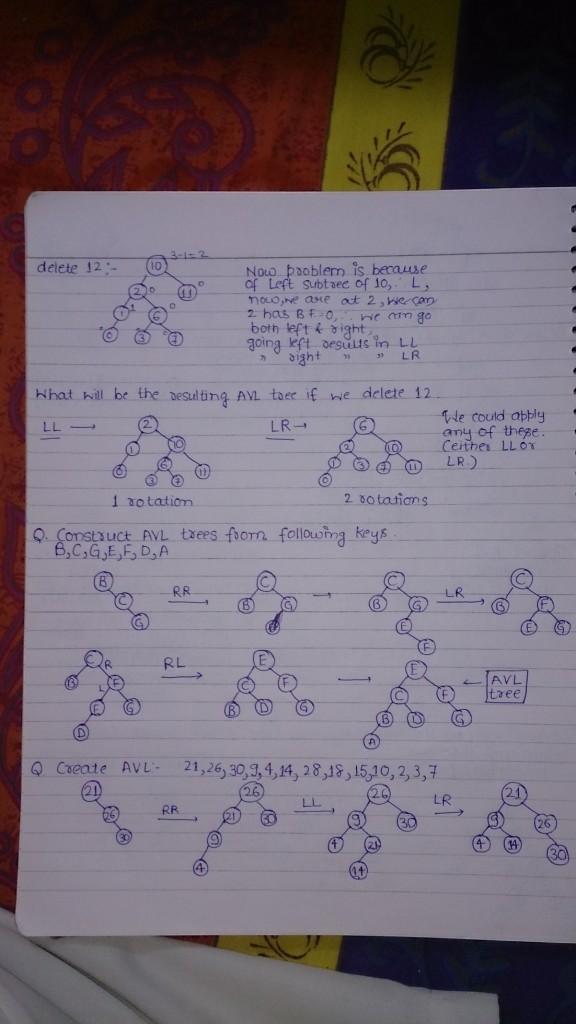 3-1=2
delete 12:- 10
2 0 11 0
1 1 6 0
0 0 3 0 7 0
Now problem is because
of Left subtree of 10, ∴ L,
now, we are at 2, we can
2 has BF=0, ∴ we can go
both left & right,
going left results in LL
" right " " LR
What will be the resulting AVL tree if we delete 12.
LL → 2
1 10
0 6 11
3 7
1 rotation
LR → 6
2 10
1 3 7 11
0
2 rotations
We could apply
any of these.
(either LL or
LR.)
Q. Construct AVL trees from following keys.
B,C,G,E,F,D,A
B C G
RR →
C B G
→
C B G E F
LR →
C B F E G
C R B F L E G D
RL →
E C F B D G
→
E C F B D G A
← AVL
tree
Q Create AVL:- 21,26,30,9,4,14,28,18,15,10,2,3,7
21 26 30
RR →
26 21 30 9 4
LL →
26 9 30 4 21 14
LR →
21 9 26 4 14 30